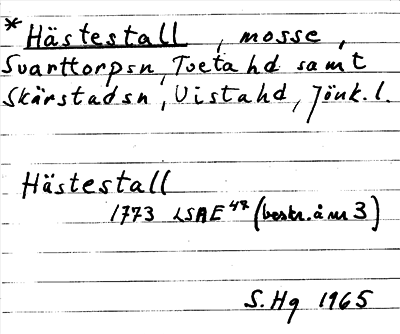 * Hästestall, mosse,
Svarttorpsn, Tveta hd samt
Skärstadsn, Vistahd, Jönk.l.
Hästestall
1773 LSA E 48 (beskr. å nr 3)
S.Hg 1965